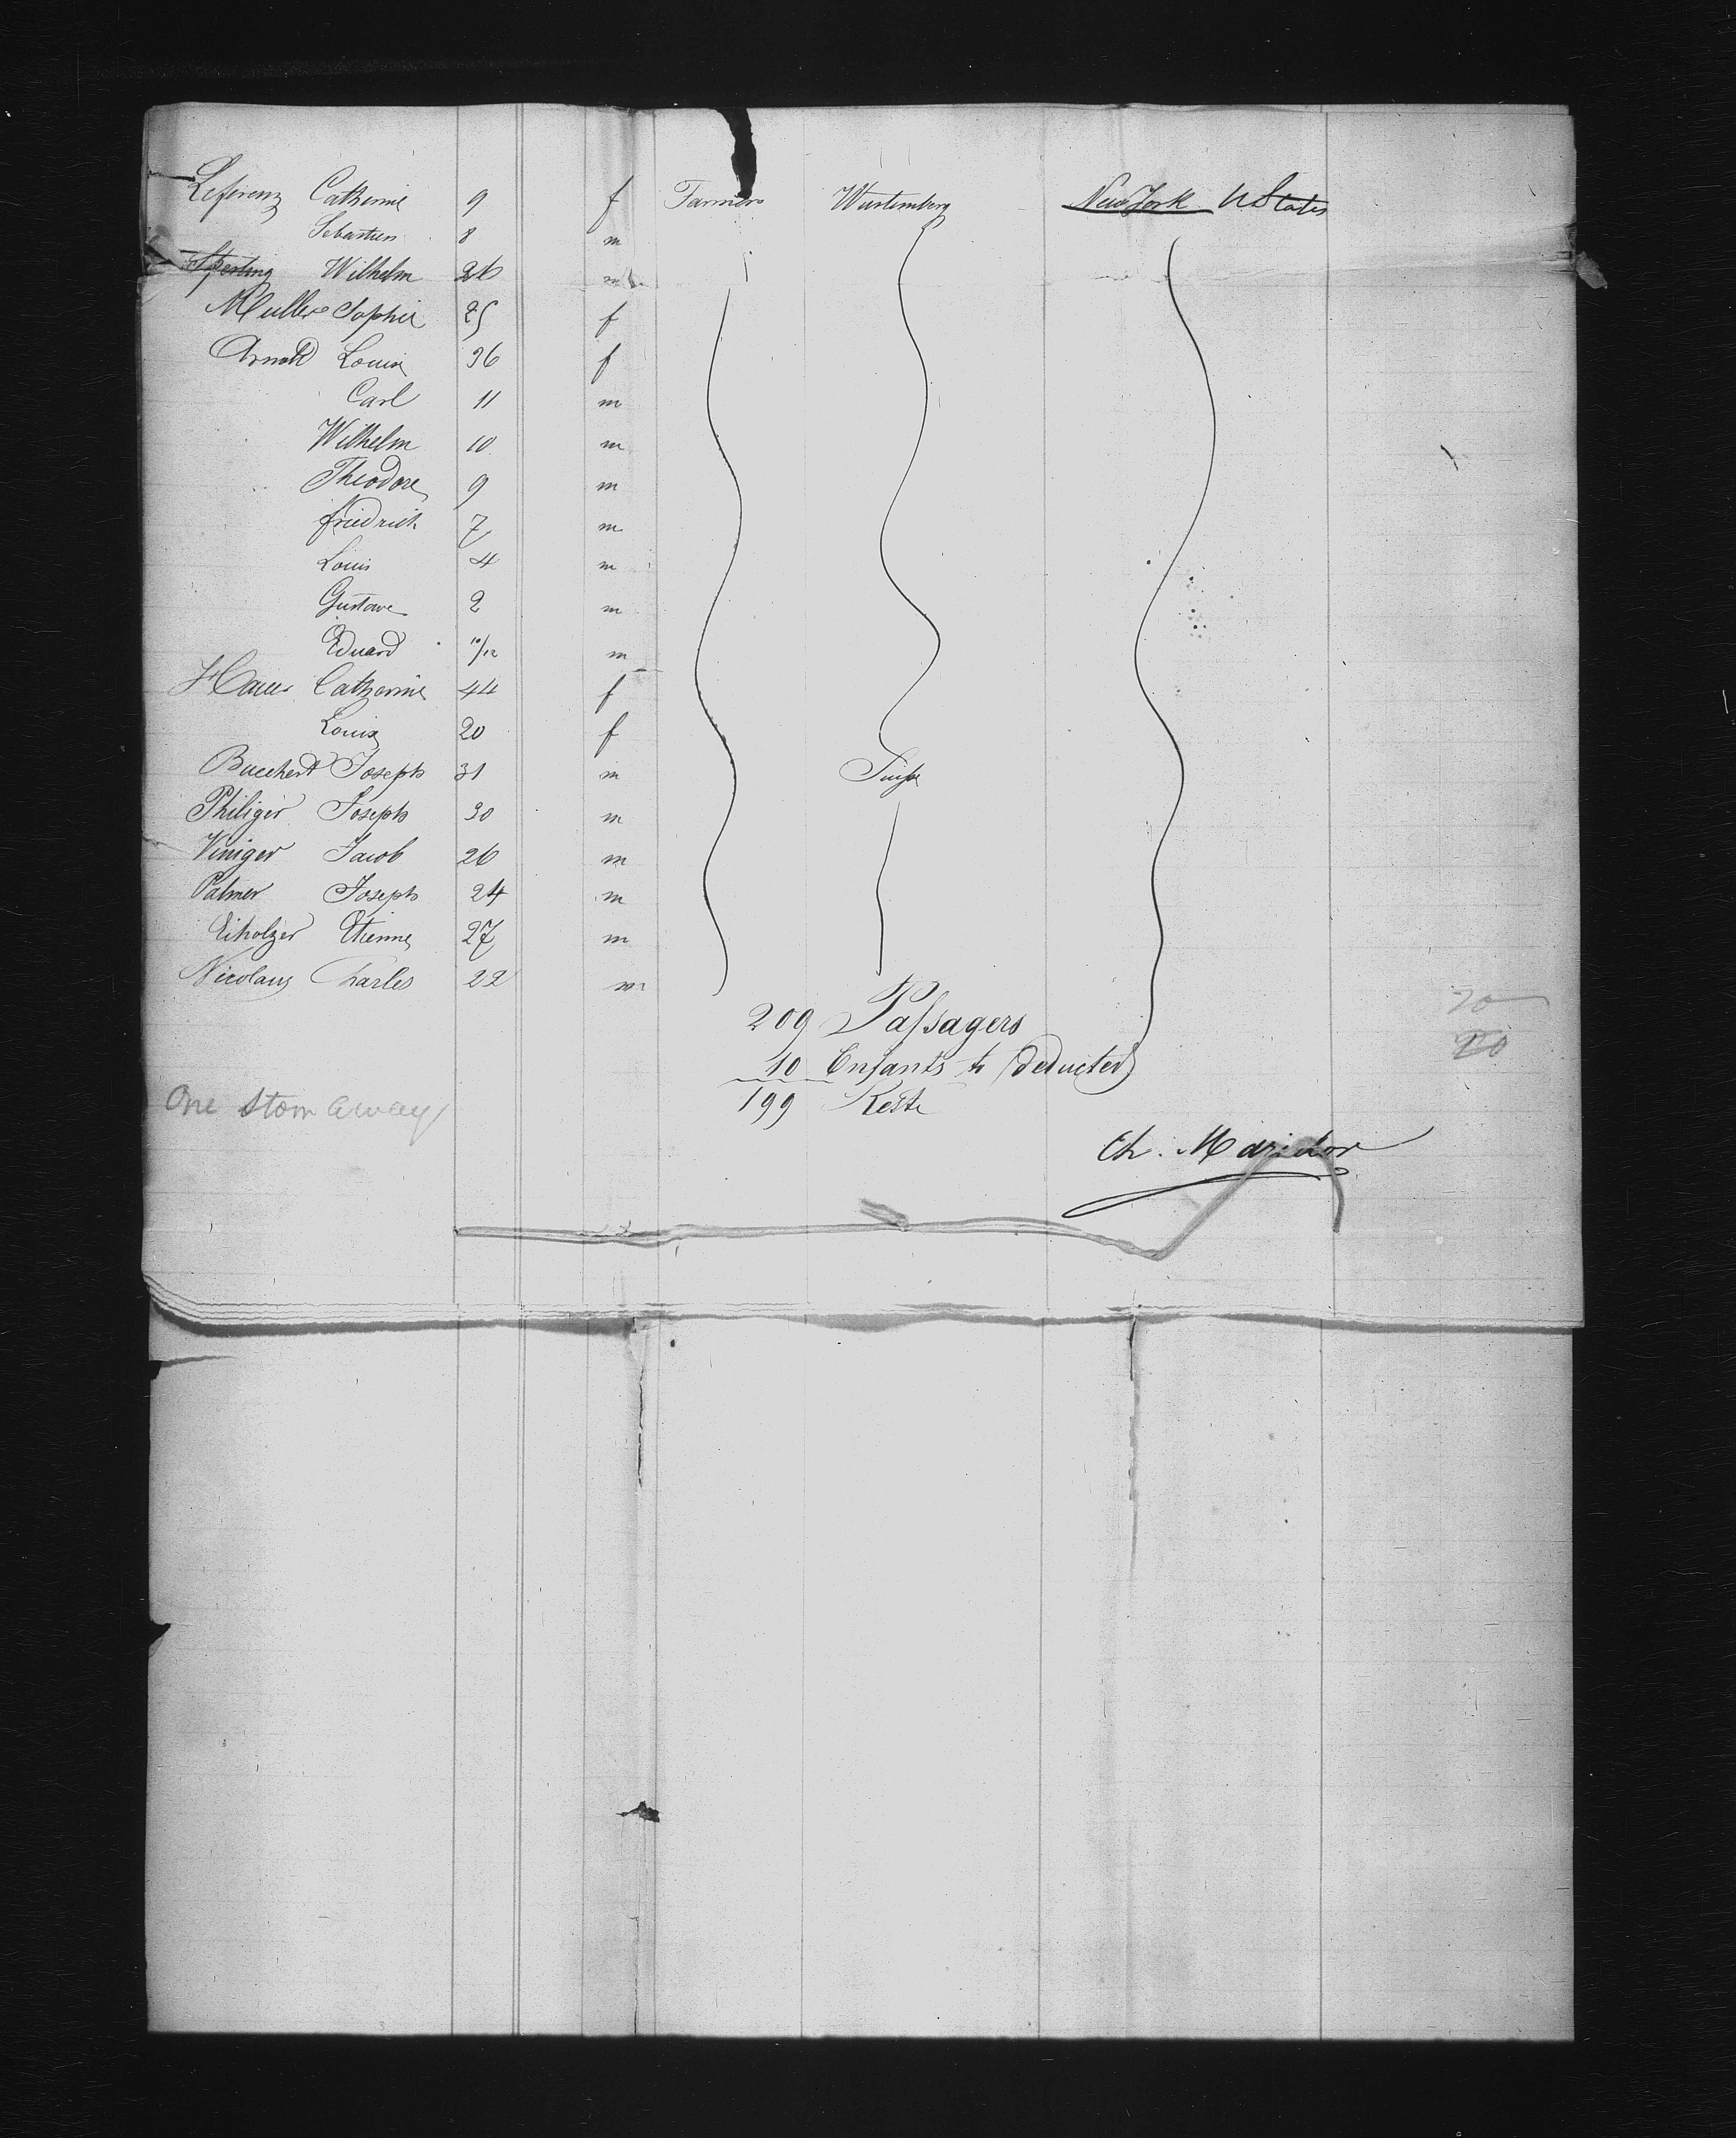 Leferenz Catherine 9 f Farmers Wurtemberg New York U States
Sebastien 8 m
Sperling Wilhelm 26 m
Muller Sophie 25 f
Arnold Louise 36 f
Carl 11 m
Wilhelm 10 m
Theodore 9 m
friedrich 7 m
Louis 4 m
Gustave 2 m
Eduard 10/12 m
Hauer Catherine 44 f
Louise 20 f
Bucchert Joseph 31 m Suisse
Philiger Joseph 30 m
Viniger Jacob 26 m
Palmer Joseph 24 m
Eiholzer Etienne 27 m
Nicolaus Charles 22 m
209 Passagers 20
10 Enfants to deducted 20
One stow away 199 Reste
Ch. Maridor